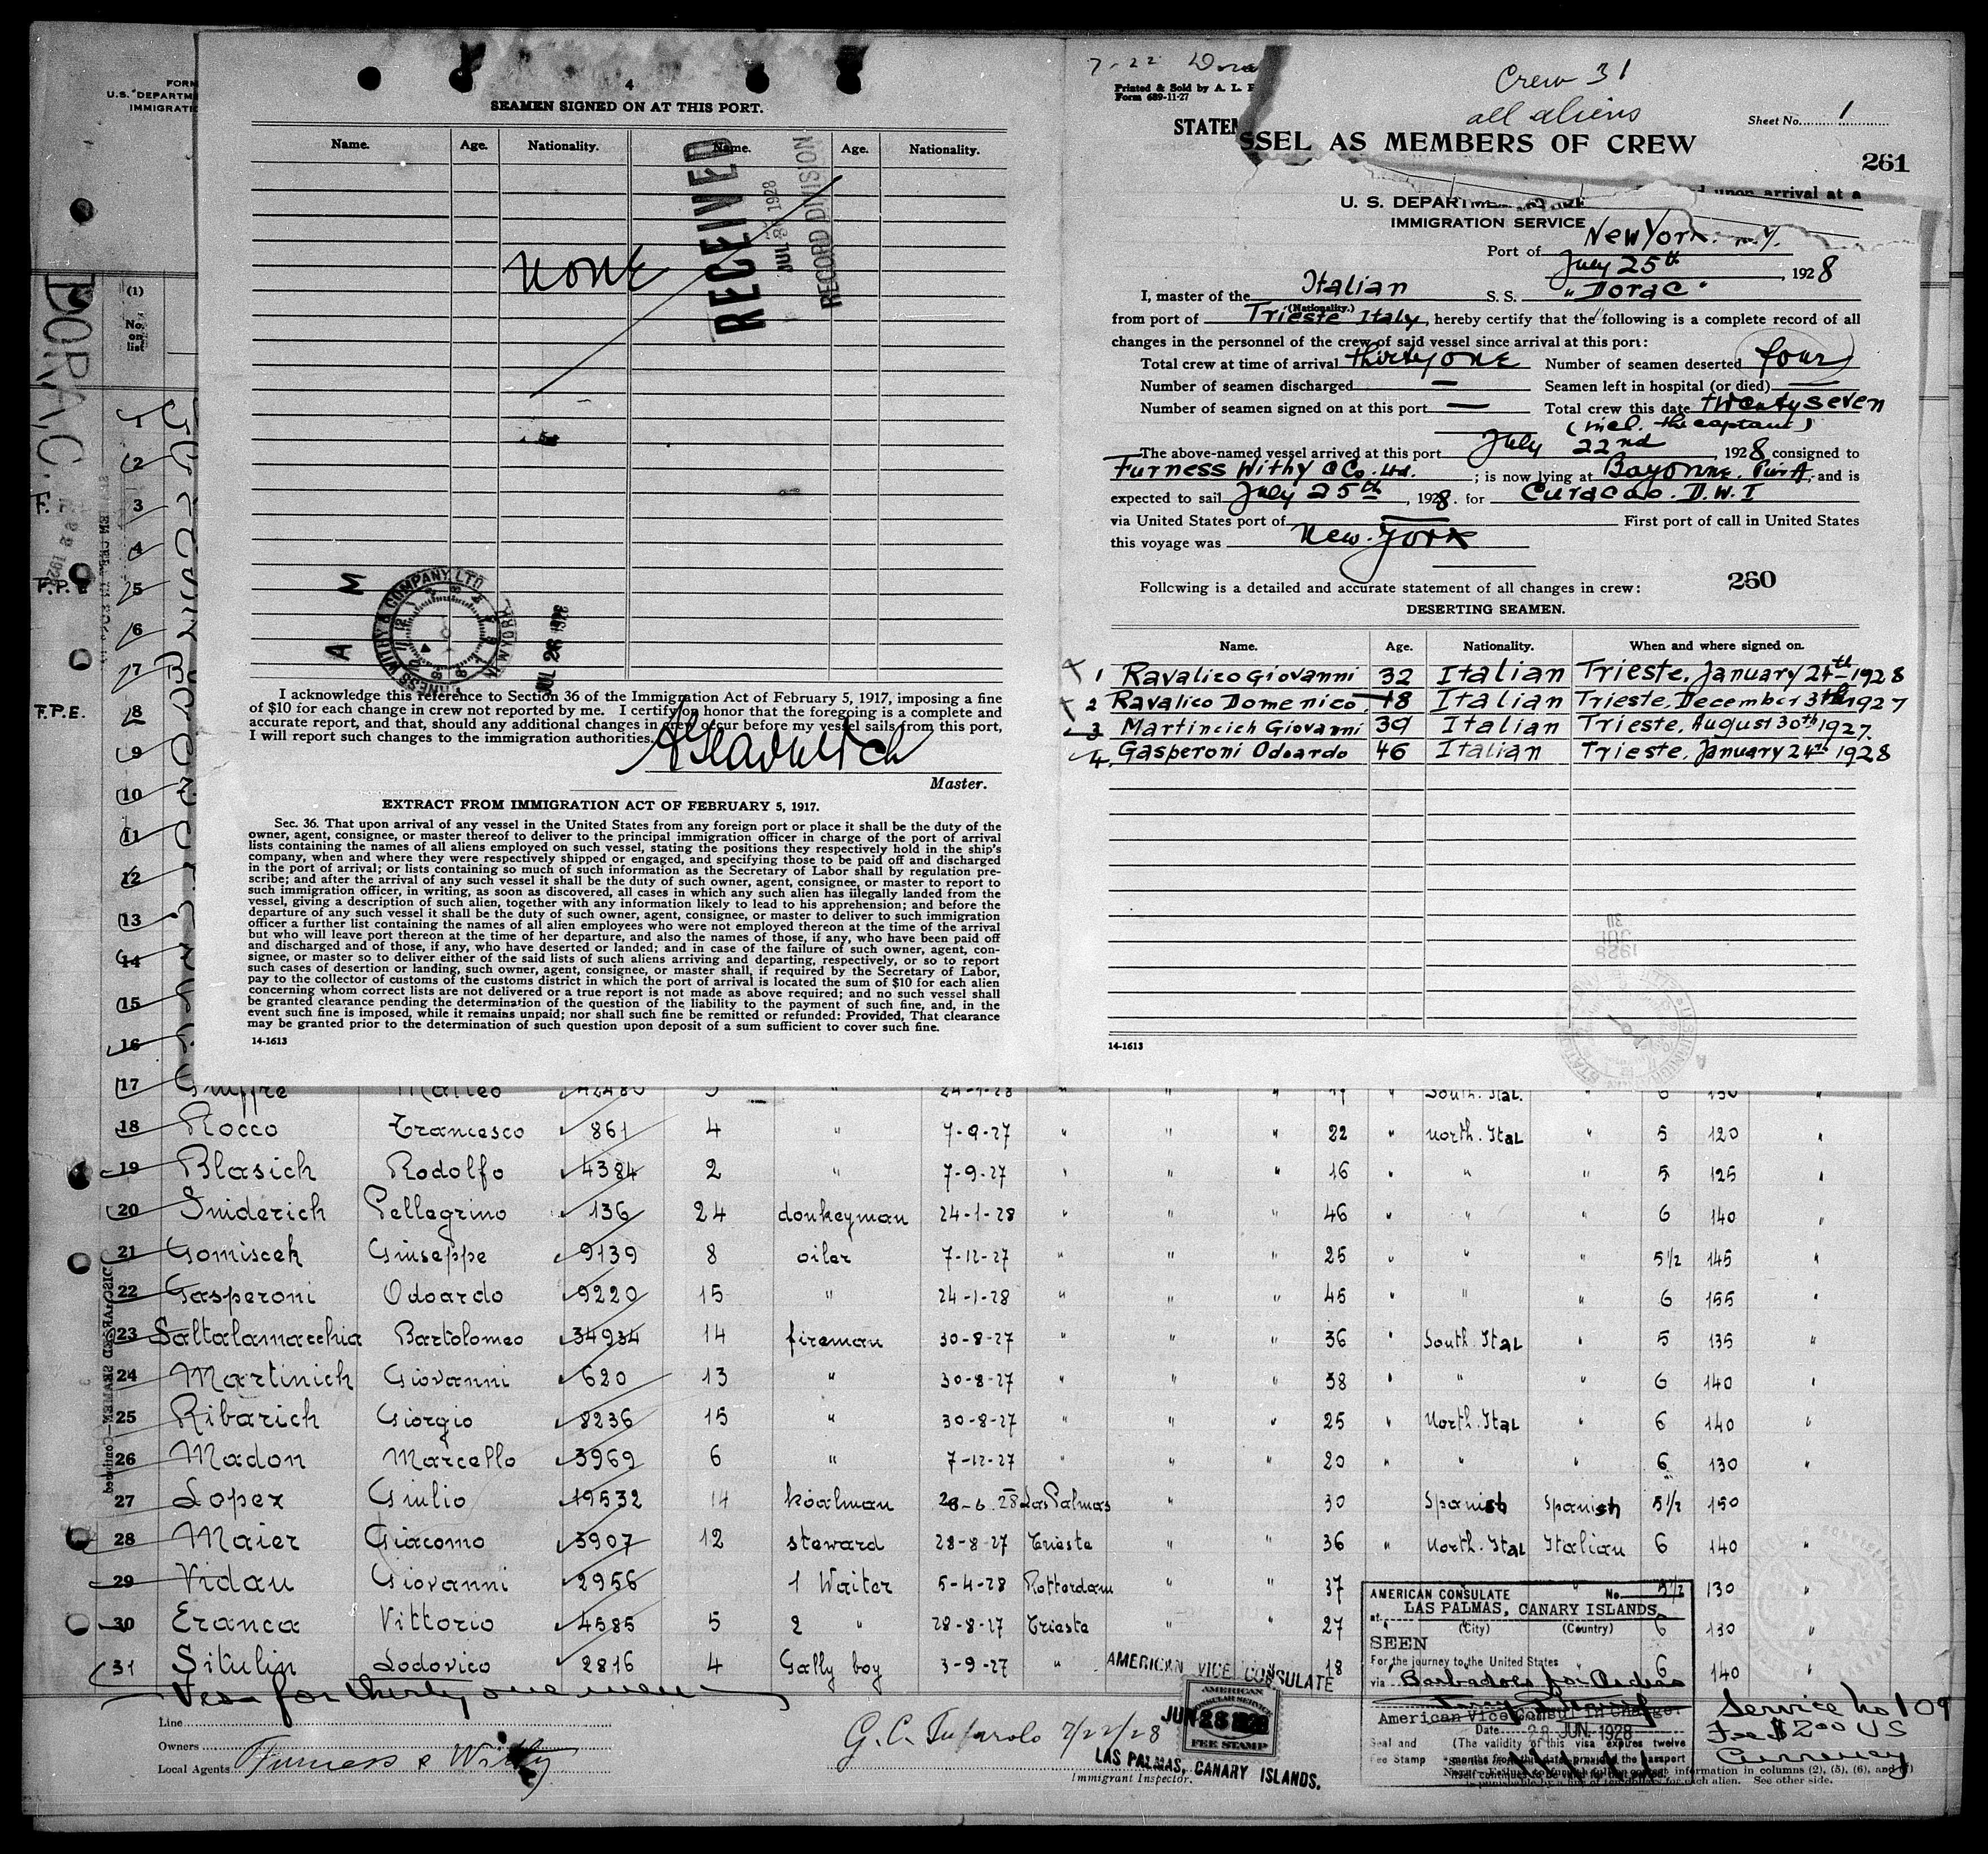 4
SEAMEN SIGNED ON AT THIS PORT.
Name. Age. Nationality. Name. Age. Nationality.
none
RECEIVED
JUL 1928
RECORD DIVISION
A M
FURNESS WITHY & COMPANY, LTD
NEW YORK
JUL 26 1928
I acknowledge this reference to Section 36 of the Immigration Act of February 5, 1917, imposing a fine
of $10 for each change in crew not reported by me. I certify on honor that the foregoing is a complete and
accurate report, and that, should any additional changes in crew occur before my vessel sails from this port,
I will report such changes to the immigration authorities.
Master.
EXTRACT FROM IMMIGRATION ACT OF FEBRUARY 5, 1917.
Sec. 36. That upon arrival of any vessel in the United States from any foreign port or place it shall be the duty of the
owner, agent, consignee, or master thereof to deliver to the principal immigration officer in charge of the port of arrival
lists containing the names of all aliens employed on such vessel, stating the positions they respectively hold in the ship's
company, when and where they were respectively shipped or engaged, and specifying those to be paid off and discharged
in the port of arrival; or lists containing so much of such information as the Secretary of Labor shall by regulation pre-
scribe; and after the arrival of any such vessel it shall be the duty of such owner, agent, consignee, or master to report to
such immigration officer, in writing, as soon as discovered, all cases in which any such alien has illegally landed from the
vessel, giving a description of such alien, together with any information likely to lead to his apprehension; and before the
departure of any such vessel it shall be the duty of such owner, agent, consignee, or master to deliver to such immigration
officer a further list containing the names of all alien employees who were not employed thereon at the time of the arrival
but who will leave port thereon at the time of her departure, and also the names of those, if any, who have been paid off
and discharged and of those, if any, who have deserted or landed; and in case of the failure of such owner, agent, con-
signee, or master so to deliver either of the said lists of such aliens arriving and departing, respectively, or so to report
such cases of desertion or landing, such owner, agent, consignee, or master shall, if required by the Secretary of Labor,
pay to the collector of customs of the customs district in which the port of arrival is located the sum of $10 for each alien
concerning whom correct lists are not delivered or a true report is not made as above required; and no such vessel shall
be granted clearance pending the determination of the question of the liability to the payment of such fine, and, in the
event such fine is imposed, while it remains unpaid; nor shall such fine be remitted or refunded: Provided, That clearance
may be granted prior to the determination of such question upon deposit of a sum sufficient to cover such fine.
14-1613
7-22
Crew 31
all aliens
Printed & Sold by A. L.
Form 689-11-27
Sheet No. 1
STATEM
SSEL AS MEMBERS OF CREW
261
upon arrival at a
U. S. DEPARTME
IMMIGRATION SERVICE
Port of New York. N.Y.
July 25th, 1928
I, master of the Italian S. S. "Dorac"
(Nationality.)
from port of Trieste Italy, hereby certify that the following is a complete record of all
changes in the personnel of the crew of said vessel since arrival at this port:
Total crew at time of arrival thirty one Number of seamen deserted four
Number of seamen discharged — Seamen left in hospital (or died) —
Number of seamen signed on at this port — Total crew this date twenty seven
(incl. the captain)
The above-named vessel arrived at this port July 22nd, 1928 consigned to
Furness Withy & Co. Ltd.; is now lying at Bayonne. Pier A, and is
expected to sail July 25th, 1928. for Curacao. D.W.I
via United States port of — First port of call in United States
this voyage was New. York
Following is a detailed and accurate statement of all changes in crew:
260
DESERTING SEAMEN.
Name. Age. Nationality. When and where signed on.
1 Ravalico Giovanni 32 Italian Trieste, January 24th 1928
2 Ravalico Domenico 18 Italian Trieste, December 3th 1927
3 Martincich Giovanni 39 Italian Trieste, August 30th 1927.
4. Gasperoni Odoardo 46 Italian Trieste, January 24th 1928
14-1613
FORM
U.S. DEPARTME
IMMIGRATIO
(1)
No.
on
list
DORAC.
F.P.E.
F.P.E.
1
2
3
4
5
6
7
8
9
10
11
12
13
14
15
16
17 Giuffre Matteo 42480 24-1-28 " " " 17 " South. Ital. " 6 130 "
18 Rocco Francesco 861 4 " 7-9-27 " " " 22 " North. Ital " 5 120 "
19 Blasich Rodolfo 4384 2 " 7-9-27 " " " 16 " " " 5 125 "
20 Sniderich Pellegrino 136 24 donkeyman 24-1-28 " " " 46 " " " 6 140 "
21 Gomiscek Giuseppe 9139 8 oiler 7-12-27 " " " 25 " " " 5½ 145 "
22 Gasperoni Odoardo 9220 15 " 24-1-28 " " " 45 " " " 6 155 "
23 Saltalamacchia Bartolomeo 34934 14 fireman 30-8-27 " " " 36 " South. Ital " 5 135 "
24 Martinich Giovanni 620 13 " 30-8-27 " " " 38 " " " 6 140 "
25 Ribarich Giorgio 8236 15 " 30-8-27 " " " 25 " North. Ital " 6 140 "
26 Madon Marcello 3969 6 " 7-12-27 " " " 20 " " " 6 130 "
27 Lopez Giulio 19532 14 koalman 28-6.28 Las Palmas " 30 Spanish Spanish 5½ 150 "
28 Maier Giacomo 3907 12 steward 28-8-27 Trieste " " 36 " North. Ital Italian 6 140 "
29 Vidau Giovanni 2956 1 Waiter 5-4-28 Rotterdam " " 37 " 5½ 130 "
30 Eranca Vittorio 4585 5 2 " 28-8-27 Trieste " " 27 6 130 "
31 Situlin Lodovico 2816 4 Gally boy 3-9-27 " " " 18 6 140 "
Visa for thirty one men
Line
Owners
Local Agents Furness & Withy
G. C. Tufarolo 7/22/28
Immigrant Inspector.
AMERICAN VICE CONSULATE
AMERICAN
CONSULAR SERVICE
FEE STAMP
JUN 28 1928
LAS PALMAS, CANARY ISLANDS.
AMERICAN CONSULATE No.
at LAS PALMAS, CANARY ISLANDS
(City) (Country)
SEEN
For the journey to the United States
via Barbadoes for Orders
American Vice Consul in Charge.
Date 28 JUN. 1928
Seal and
Fee Stamp
(The validity of this visa expires twelve
months from this date provided the passport
Service No 109
Fee $2.00 US
Currency
information in columns (2), (5), (6), and (7)
each alien. See other side.